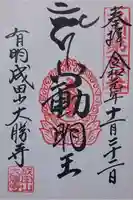 奉拝 令和元年十一月二十二日
不動明王
有明成田山大勝寺